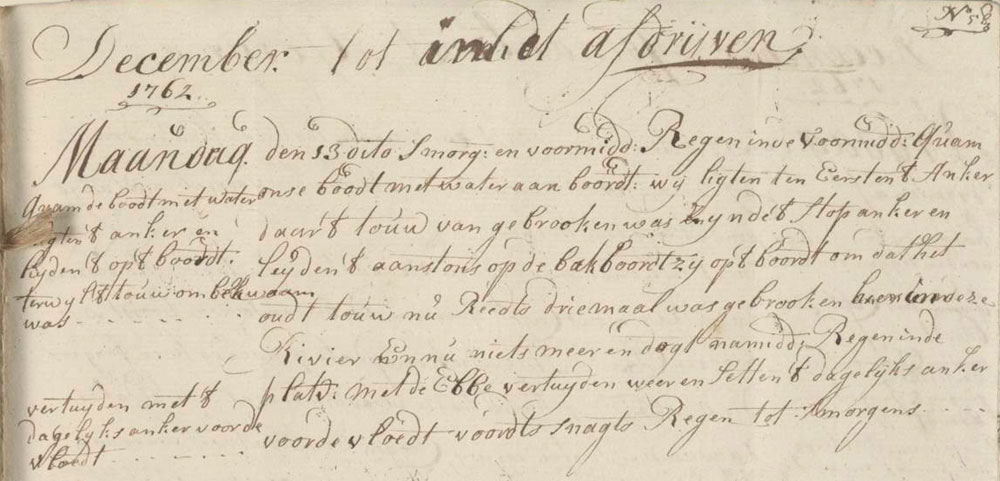 No 583
December. tot in het afdrijven.
1762.
Maandag. den 13 dito Smorg: en voormidd: Regen inde voormidd: quam
quam de boodt met water
ligten't anker en
leyden't op't boordt.
terwyl t touw onbekwaam
was
onse boodt met water aan boordt: wij ligten ten Eersten t Anker
daar't touw van gebrooken was lynde't stop anker en
leyden't aanstons op de bakboordt zy op't boordt om dat het
oudt touw nu Reedts driemaal was gebrooken hier in deze
Rivier en nu niets meer en dogt namidd: Regen in de
vertuyden met t
dagelyks anker voorde
vloedt
platv: met de Ebbe vertuyden weer en setten t dagelyks anker
voorde vloedt voordts snagts Regen tot smorgens